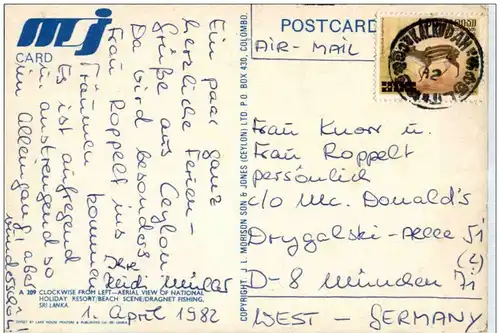 mj
CARD
POSTCARD
AIR-MAIL
Ein paar ganz
herzliche Ferien-
Grüße aus Ceylon.
Da wird besonders
Frau Roppelt ins
Träumen kommen.
Es ist aufregend
u. anstrengend so
im Alleingang aber
wunderschön
Ihre
Heidi Müller
1. April 1982
Frau Knorr u.
Frau Roppelt
persönlich
c/o Mc. Donald's
Drygalski-Allee 51
D-8 München 71
WEST-GERMANY
COPYRIGHT. J. L. MORISON SON & JONES (CEYLON) LTD. P.O. BOX 430, COLOMBO.
309 CLOCKWISE FROM LEFT—AERIAL VIEW OF NATIONAL
HOLIDAY RESORT/BEACH SCENE/DRAGNET FISHING,
SRI LANKA
OFFSET BY LAKE HOUSE PRINTERS & PUBLISHERS LTD. SRI LANKA